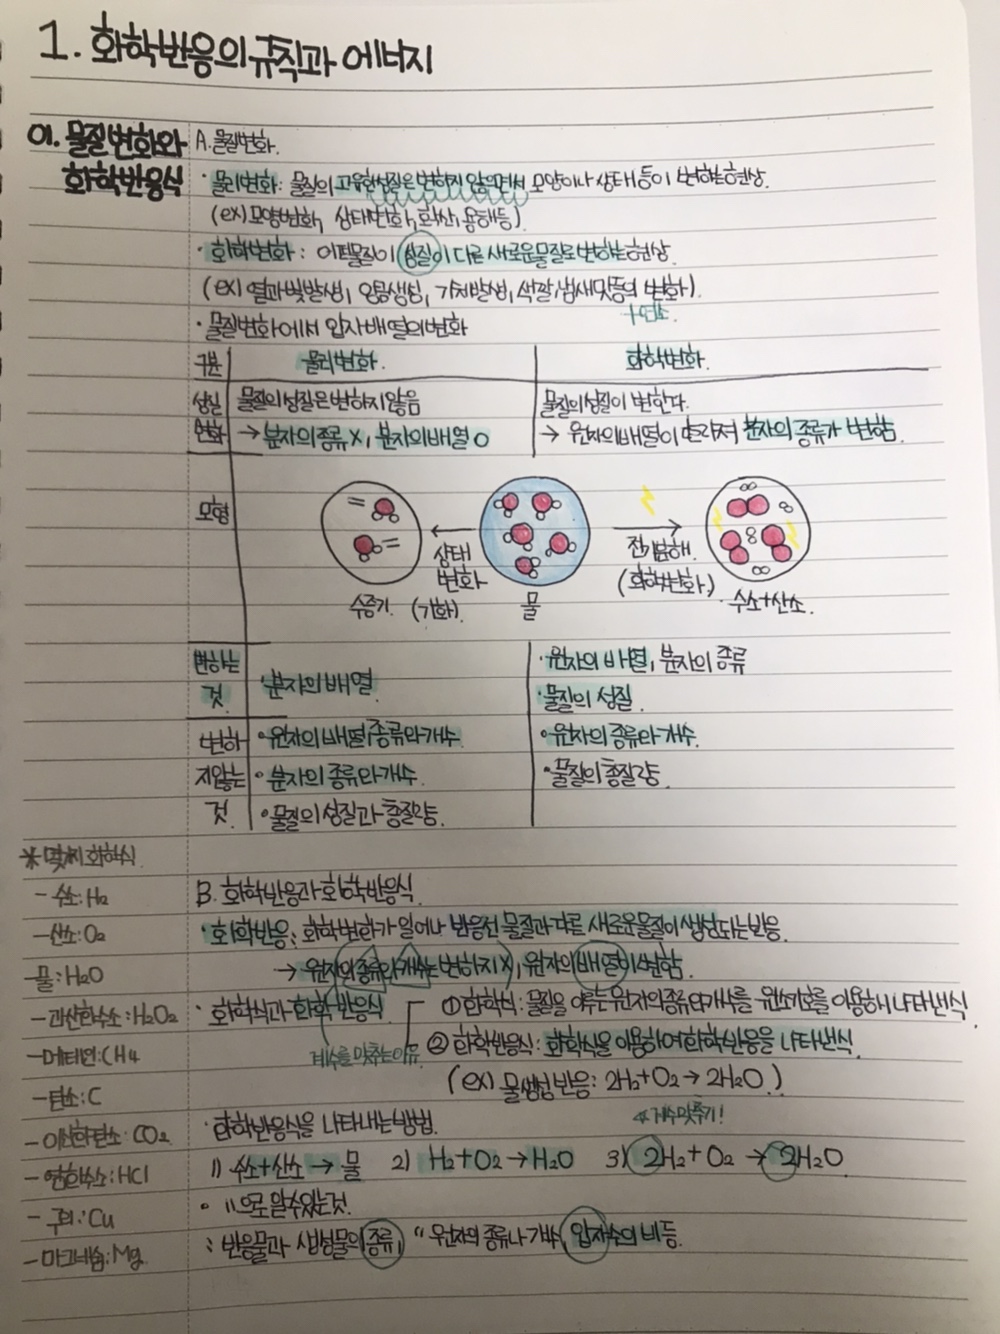 1. 화학반응의 규칙과 에너지
01. 물질변화와
화학반응식
A. 물질변화.
· 물리변화: 물질의 고유한성질은변하지 않으면서 모양이나 상태 등이 변하는현상.
(ex) 모양변화, 상태변화, 확산, 용해등)
· 화학변화: 어떤물질이 성질이 다른 새로운물질로변하는현상
(ex) 열과빛발생, 앙금생성, 기체발생, 색깔,냄새,맛등의 변화).
+연소.
· 물질변화에서 입자배열의변화
구분 물리변화. 화학변화.
성질 물질의성질은변하지않음 물질의성질이 변한다.
변화 → 분자의종류 X, 분자의배열 O → 원자의배열이 달라져 분자의 종류가 변함.
모형
상태 전기분해.
변화 (화학변화.)
수증기. (기화). 물 수소+산소.
변하는 · 원자의 배열, 분자의 종류
것. · 분자의 배열 · 물질의 성질.
변하 · 원자의배열,종류와개수. · 원자의 종류와 개수.
지않는 · 분자의 종류와개수. · 물질의 총질량.
것. · 물질의 성질과 총질량.
B. 화학반응과 화학반응식
· 화학반응: 화학변화가 일어나 반응전 물질과 다른 새로운물질이 생성되는반응.
→ 원자의종류와개수는 변하지X, 원자의배열이변함.
· 화학식과 화학반응식 ① 화학식: 물질을 이루는원자의종류와개수를 원소기호를 이용해 나타낸식
계수를 맞추는이유. ② 화학반응식: 화학식을 이용하여화학반응을 나타낸식.
(ex) 물생성 반응: 2H₂+O₂→2H₂O.)
· 화학반응식을 나타내는방법. 계수맞추기!
1) 수소+산소 → 물 2) H₂+O₂→H₂O 3) 2H₂+O₂ → 2H₂O
· 〃으로 알수있는것.
: 반응물과 생성물의 종류, 〃 원자의 종류나 개수, 입자수의 비 등.
※ 몇가지 화학식
- 수소: H₂
- 산소: O₂
- 물: H₂O
- 과산화수소: H₂O₂
- 메테인: CH₄
- 탄소: C
- 이산화탄소: CO₂
- 염화수소: HCl
- 구리: Cu
- 마그네슘: Mg